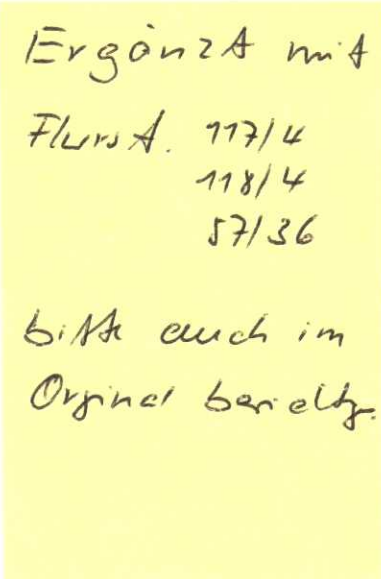 Ergänzt mit
Flurst. 117/4
118/4
57/36
bitte auch im
Orginal berichtg.